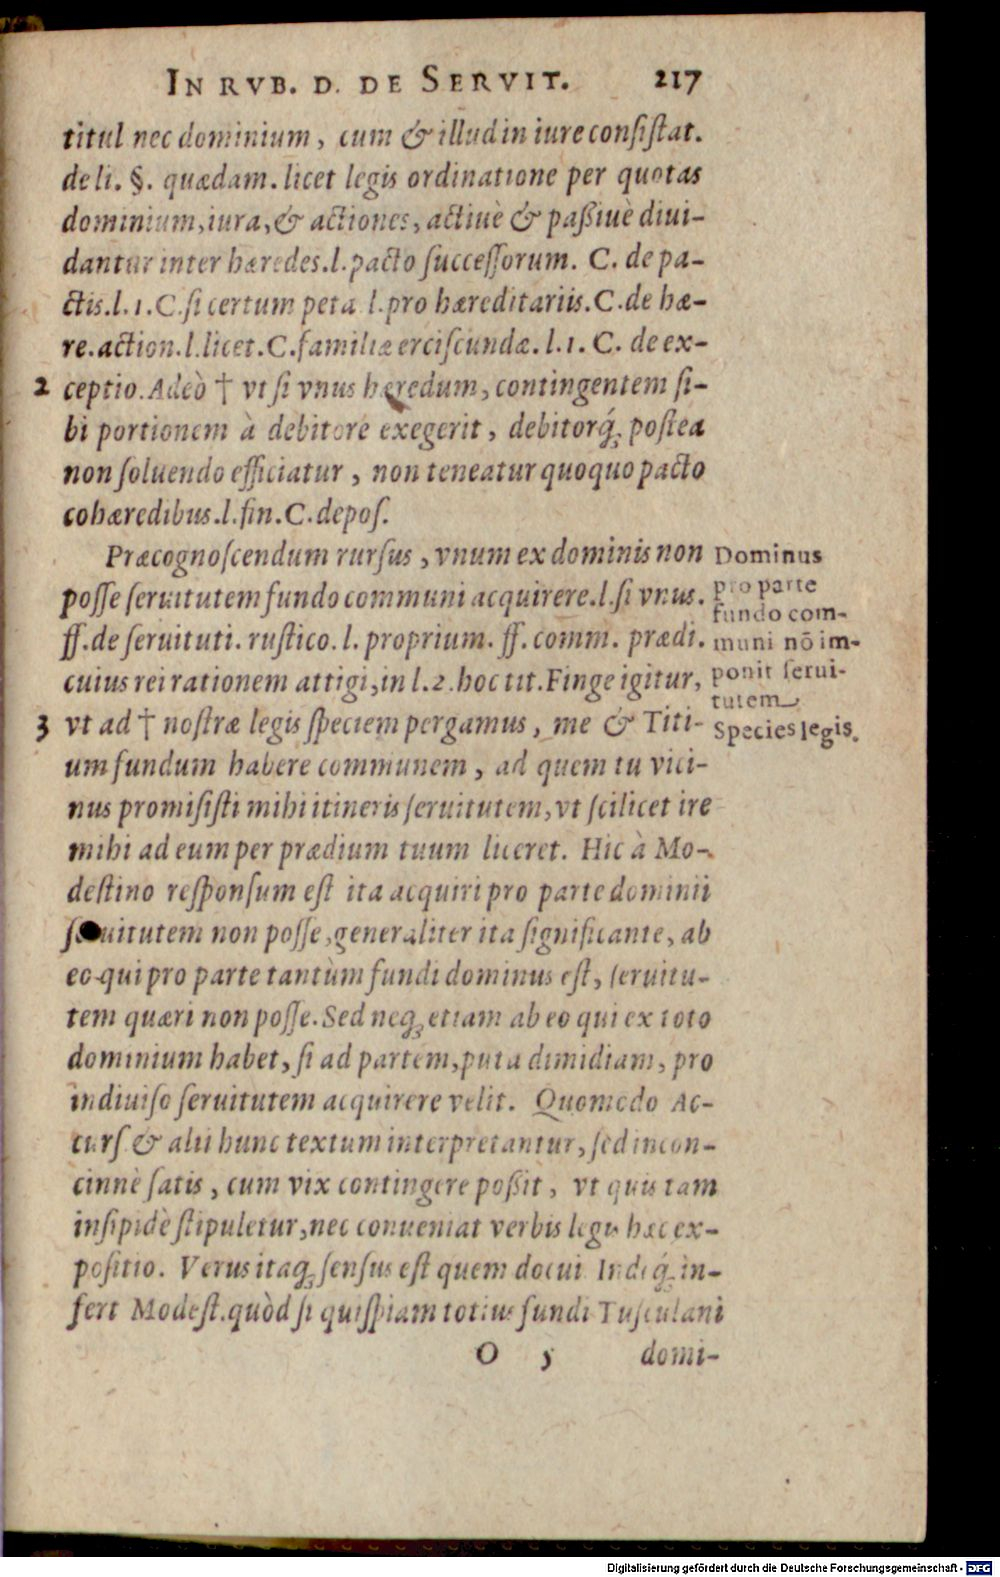 IN RVB. D. DE SERVIT. 217
titul nec dominium, cum & illud in iure consistat.
de li. §. quædam. licet legis ordinatione per quotas
dominium, iura, & actiones, actiuè & paßiuè diui-
dantur inter hæredes. l. pacto successorum. C. de pa-
ctis. l. 1. C. si certum peta l. pro hæreditariis. C. de hæ-
re. action. l. licet. C. familiæ erciscundæ. l. 1. C. de ex-
2 ceptio. Adeò † vt si vnus hæredum, contingentem si-
bi portionem à debitore exegerit, debitorq́; postea
non soluendo efficiatur, non teneatur quoquo pacto
cohæredibus. l. fin. C. depos.
Præcognoscendum rursus, vnum ex dominis non
posse seruitutem fundo communi acquirere. l. si vnus.
ff. de seruituti. rustico. l. proprium. ff. comm. prædi.
cuius rei rationem attigi, in l. 2. hoc tit. Finge igitur,
3 vt ad † nostræ legis speciem pergamus, me & Titi-
um fundum habere communem, ad quem tu vici-
nus promisisti mihi itineris seruitutem, vt scilicet ire
mihi ad eum per prædium tuum liceret. Hic à Mo-
destino responsum est ita acquiri pro parte dominii
seruitutem non posse, generaliter ita significante, ab
eo qui pro parte tantùm fundi dominus est, seruitu-
tem quæri non posse. Sed neq; etiam ab eo qui ex toto
dominium habet, si ad partem, puta dimidiam, pro
indiuiso seruitutem acquirere velit. Quomodo Ac-
curs & alii hunc textum interpretantur, sed incon-
cinnè satis, cum vix contingere poßit, vt quis tam
insipidè stipuletur, nec conueniat verbis legis hæc ex-
positio. Verus itaq; sensus est quem docui Indeq́; in-
fert Modest. quòd si quispiam totius fundi Tusculani
O 5 domi-
Dominus
pro parte
fundo com-
muni nō im-
ponit serui-
tutem
Species legis.
Digitalisierung gefördert durch die Deutsche Forschungsgemeinschaft - DFG